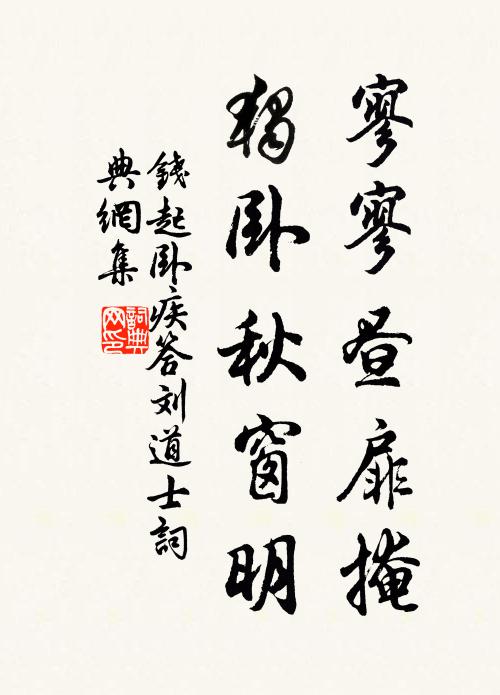 寥寥昼扉掩
独卧秋窗明
錢起卧疾答刘道士詞
典網集
詞典网印